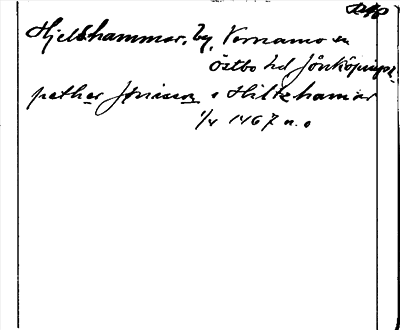 Hjelshammar, by, Värnamo sn
Östbo hd, Jönköpings
pether Jönisson i Hiltzhamar
1/4 1467 n. o